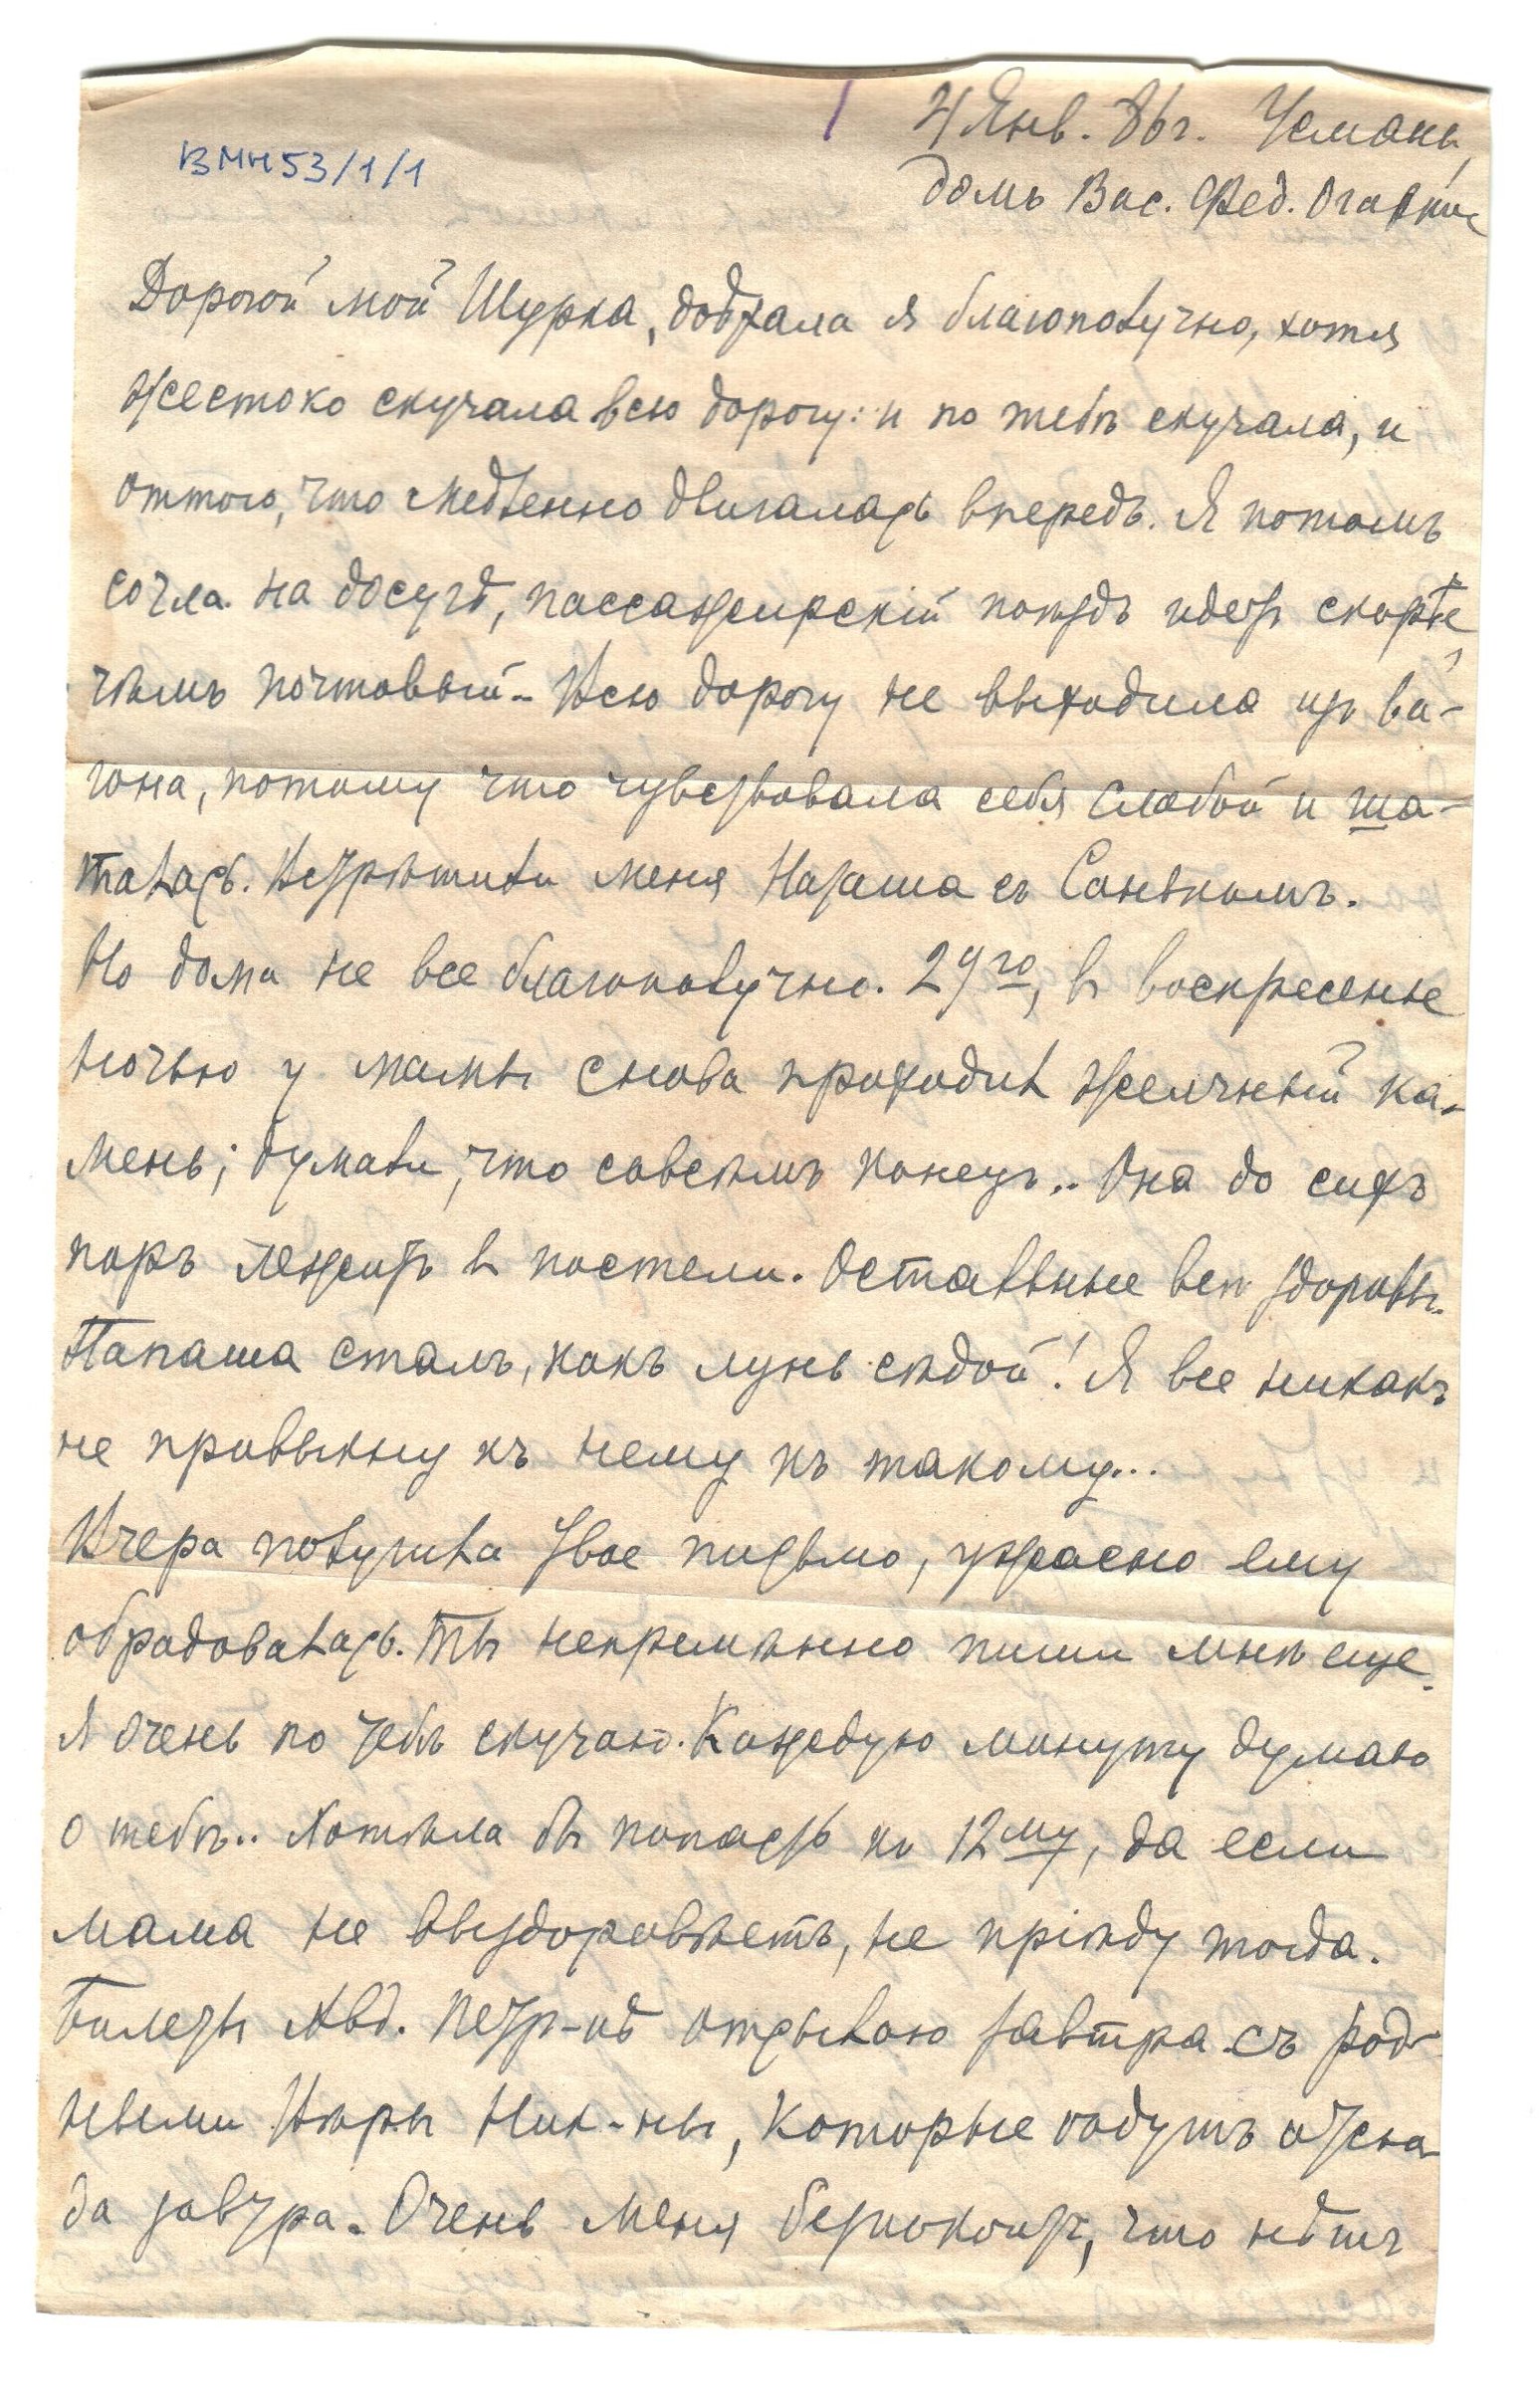 ВМН53/1/1
4 Янв. 86г. Усмань,
домъ Вас. Фед. Огаркис
Дорогой мой Шурка, доѣхала я благополучно, хотя
жестоко скучала всю дорогу: и по тебѣ скучала, и
оттого, что медленно двигалась впередъ. Я потомъ
сочла на досугѣ, пассажирскій поѣздъ идетъ скорѣе,
чѣмъ почтовый. Всю дорогу не выходила изъ ва-
гона, потому что чувствовала себя слабой и ша-
талась. Встрѣтили меня Наташа съ Санькомъ.
Но дома не все благополучно. 29го, въ воскресенье
ночью у мамы снова проходилъ желчный ка-
мень; думали, что совсѣмъ конецъ.. Она до сихъ
поръ лежитъ въ постели. Остальные всѣ здоровы.
Папаша сталъ, какъ лунь сѣдой! Я все никакъ
не привыкну къ нему къ такому...
Вчера получила твое письмо, ужасно ему
обрадовалась. Ты непремѣнно пиши мнѣ еще.
Я очень по тебѣ скучаю. Каждую минуту думаю
о тебѣ.. Хотѣла бы попасть къ 12му, да если
мама не выздоровѣетъ, не пріѣду тогда.
Билеты Авд. Петр-нѣ отсылаю завтра съ род-
ными Вѣры Ник-ны, которые ѣдутъ отсю-
да завтра. Очень меня безпокоитъ, что нѣтъ